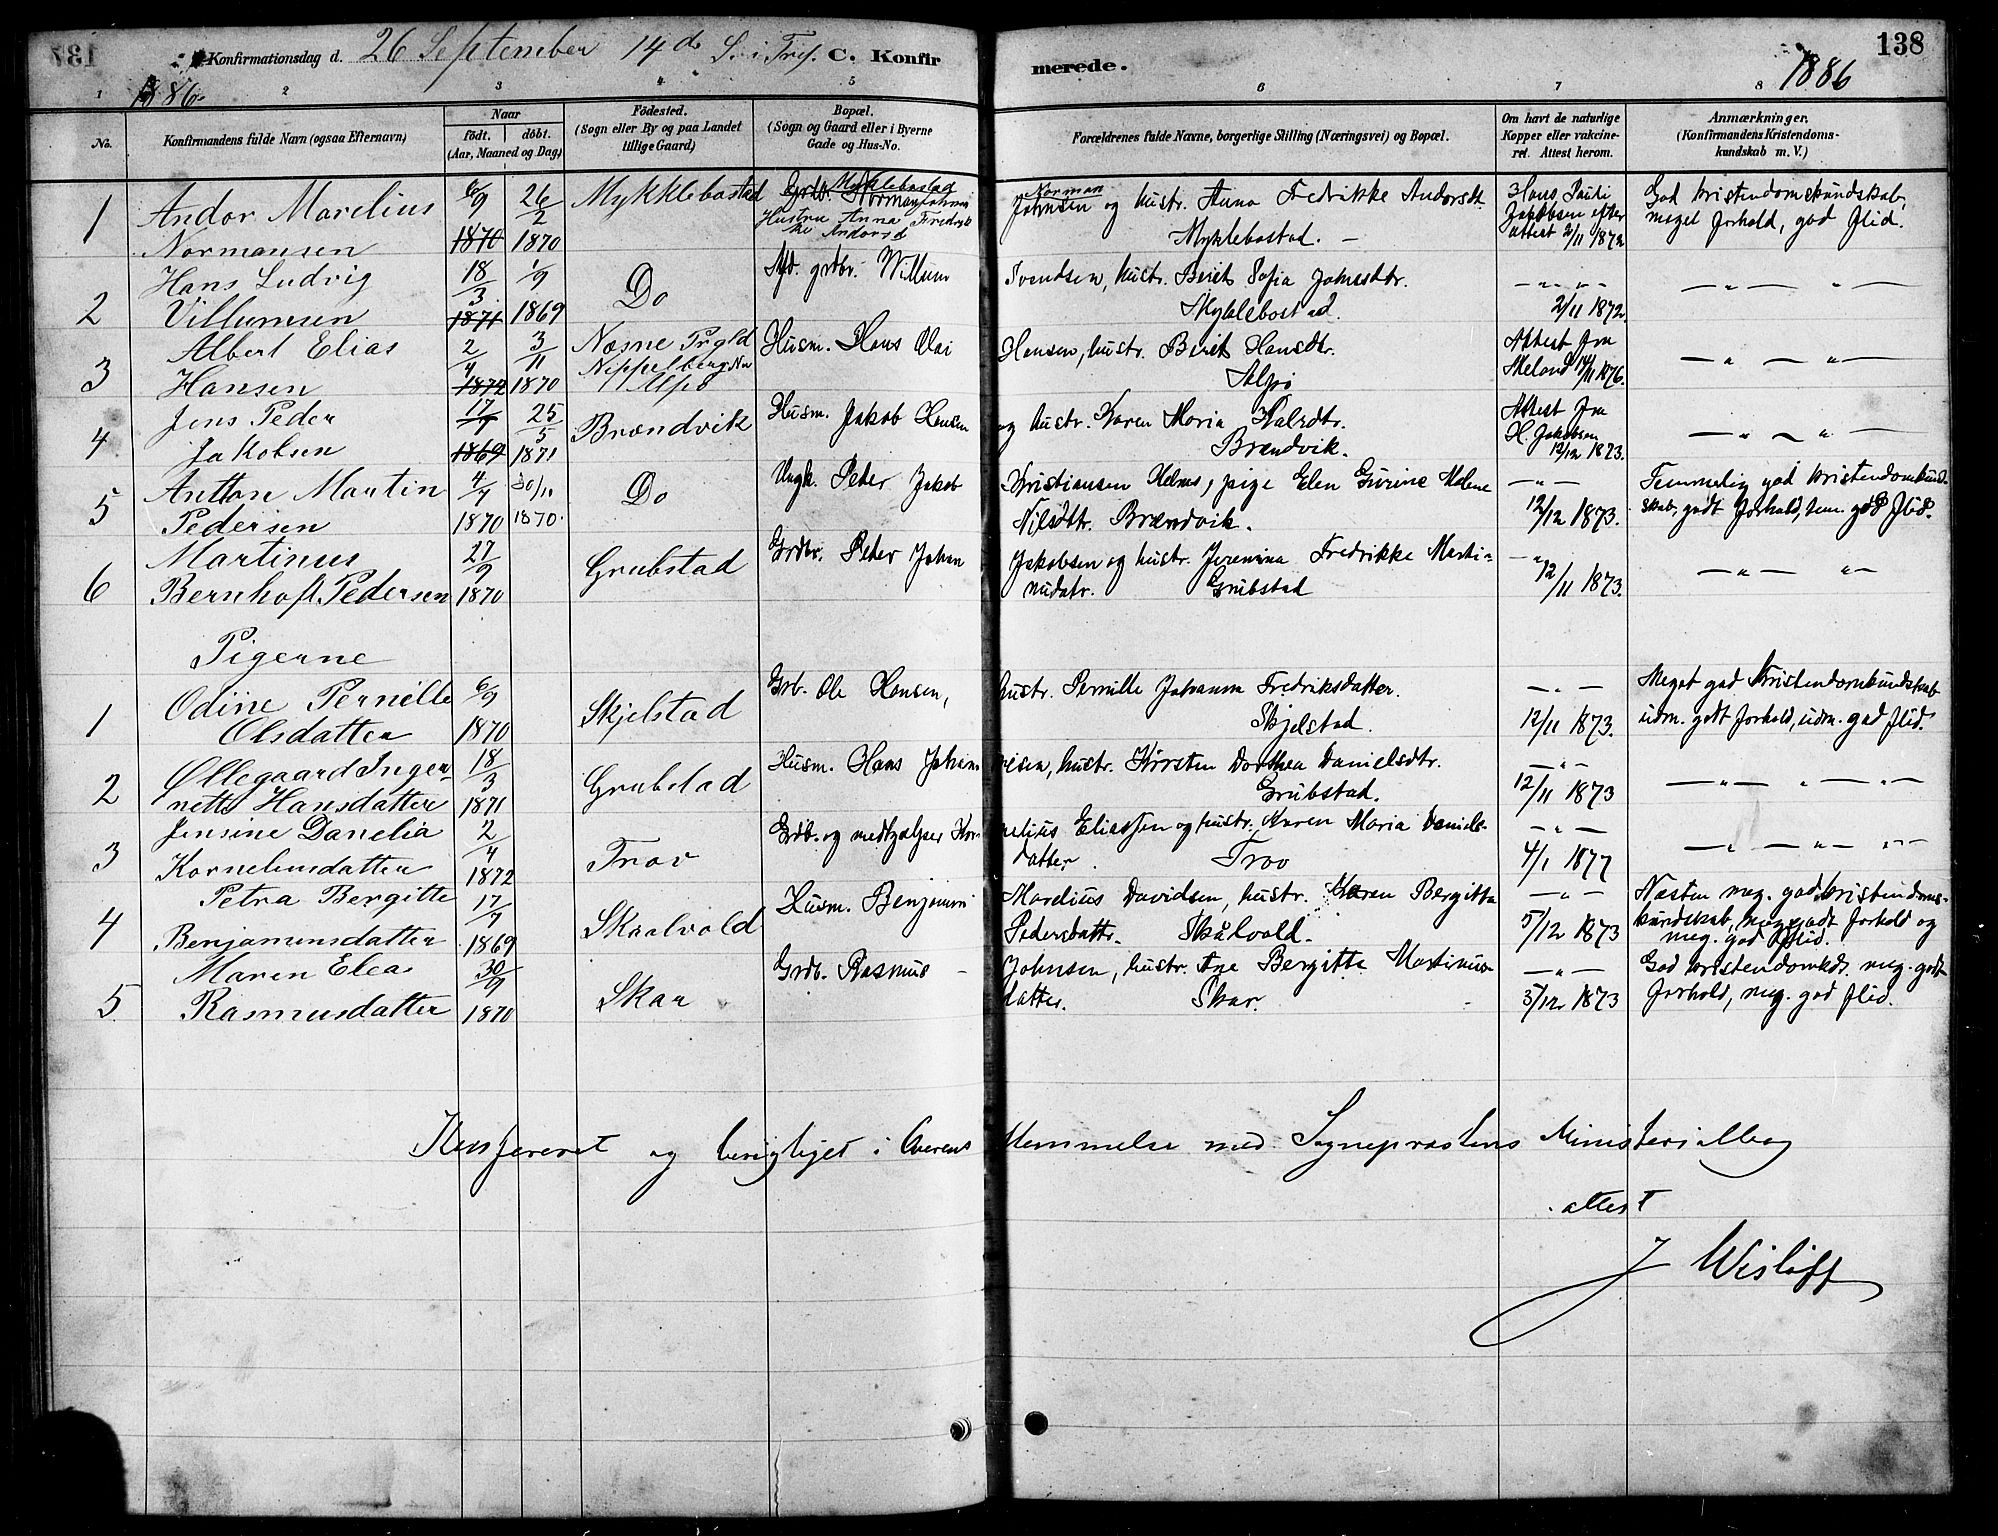 Konfirmationsdag d. 26 September 14de S. i Tref. C. Konfirmerede. 138
1886. 1886
1 2 3 4 5 6 7 8
No.
Konfirmandens fulde Navn (ogsaa Efternavn)
Naar
født. døbt.
(Aar, Maaned og Dag)
Födested.
(Sogn eller By og paa Landet
tillige Gaard)
Bopæl.
(Sogn og Gaard eller i Byerne
Gade og Hus-No.
Forældrenes fulde Navne, borgerlige Stilling (Næringsvei) og Bopæl.
Om havt de naturlige
Kopper eller vakcine-
ret. Attest herom.
Anmærkninger.
(Konfirmandens Kristendoms-
kundskab m. V.)
1 Andor Marelius Normansen 6/9 1870 26/2 1870 Mykklebostad Grdbr. Norman Johnsen Myklebostad Hustru Anna Fredrikke Andorsd
Norman Johnsen og hustr. Anna Fredrikke Andorsdt. Myklebostad. Hans Pauli Jakobsen efter attest 2/11 1872 God kristendomskundskab, meget forhold, god flid.
2 Hans Ludvig Villumsen 18/3 1871 1/9 1869 Do Afd. grdbr. Willum Svendsen, hustr. Berit Sofia Johnsdtr. Myklebostad. — " — " — 2/11 1872. — " — " —
3 Albert Elias Hansen 2/4 1872 3/11 1870 Nesne Prgld Alpø Husm. Hans Hansen, hustr. Berit Hansdtr. Alpø Attest fra Meland 14/11 1876. — " — " —
4 Jens Peder Jakobsen 17/7 1869 25/5 1871 Brændvik Husm. Jakob Hansen og hustr. Karen Maria Halsdtr. Brændvik. Attest fra H. Jakobsen 12/12 1873. — " — " —
5 Antton Martin Pedersen 4/7 1870 30/11 1870. Do Ungk. Peter Jakob Kristiansen Helnes, pige Elen Gurine Malene Nilsdtr. Brændvik. — " — 12/12 1873. Temmelig god kristendomkundskab, godt forhold, tem. god flid.
6 Martinus Bernhoft Pedersen 27/9 1870 Grubstad Grdbr. Peter Johan Jakobsen og hustr. Jeremina Fredrikke Martinusdatr. Grubstad — " — 12/11 1873. — " — " —
Pigerne
1 Odine Pernille Olsdatter 6/9 1870 Skjelstad Grb. Ole Hansen, hustr. Pernille Johanna Fredriksdatter. Skjelstad. — " — 12/11 1873. Meget god kristendomkundskab udm. godt forhold, udm. god flid.
2 Ollegaard Ingernette Hansdatter 18/3 1871 Grubstad Husm. Hans Johannesen, hustr. Kirsten Dorthea Danielsdtr. Grubstad. — " — 12/11 1873 — " — " — " —
3 Jensine Danelia Kornelinsdatter 2/4 1872 Trov Grdb. og medhjælper Kornelius Eliassen og hustr. Karen Maria Danielsdatter. Trov — " — 4/1 1877 — " — " — " —
4 Petra Bergitte Benjamensdatter 17/7 1869 Skaalvold Husm. Benjamin Marelius Davidsen, hustr. Karen Bergitta Pedersdattr. Skålvold. — " — 5/12 1873 Næsten meg. god kristendomskundskab, meg. godt forhold og meg. god flid.
5 Maren Elea Rasmusdatter 30/9 1870 Skar Grdb. Rasmus Johnsen, hustr. Ane Bergitte Martinusdatter. Skar. — " — 5/12 1873 God kristendomkds. meg. godt forhold, meg. god flid.
Konfereret og berigtiget i Overensstemmelse med Sognepræstens Ministerialbog
attest
J Wisløff